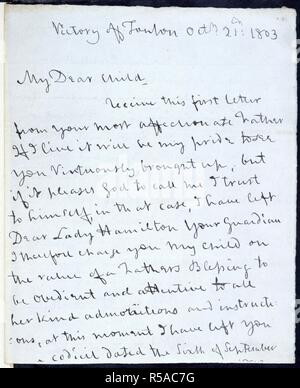 Victory off Toulon Octr. 21st: 1803
My Dear Child.
Receive this first letter
from your most affectionate Father
If I live it will be my pride to see
you Virtuously brought up, but
if it pleases God to call me I trust
to himself, in that case, I have left
Dear Lady Hamilton Your Guardian
I therefore charge you My Child on
the value of a Fathers Blessing to
be obedient and attentive to all
her kind admonitions and instructi
=ons, at this moment I have left you
a codicil dated the Sixth of September
alamy
Image ID: R5AC7G
www.alamy.com